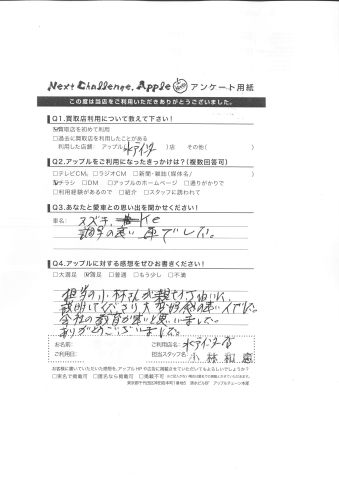 Next Challenge. Apple アンケート用紙
この度は当店をご利用いただきありがとうございました。
Q1.買取店利用について教えて下さい!
☑買取店を初めて利用
□過去に買取店を利用したことがある
利用した店舗: アップル( 水戸インター )店 その他( )
Q2.アップルをご利用になったきっかけは?(複数回答可)
□テレビCM □ラジオCM □新聞・雑誌(媒体名/ )
☑チラシ □DM □アップルのホームページ □通りがかりで
□利用経験があるので □紹介 □スタッフに誘われて
Q3.あなたと愛車との思い出を聞かせください!
車名: スズキ Kei
調子の良い車でした。
Q4.アップルに対する感想をぜひお書きください!
□大満足 ☑満足 □普通 □もう少し □不満
担当の小林さんが親切丁寧に
説明してくださり大変好感の良い人でした。
会社の教育が良いと思いました。
ありがとうございました。
お名前:
ご利用店名: 水戸インター店
ご利用日:
担当スタッフ名: 小林和
お客様に書いていただいた感想を、アップルHPや広告に掲載させていただいてもよろしいでしょうか?
□実名で掲載可 □匿名なら掲載可 □掲載不可